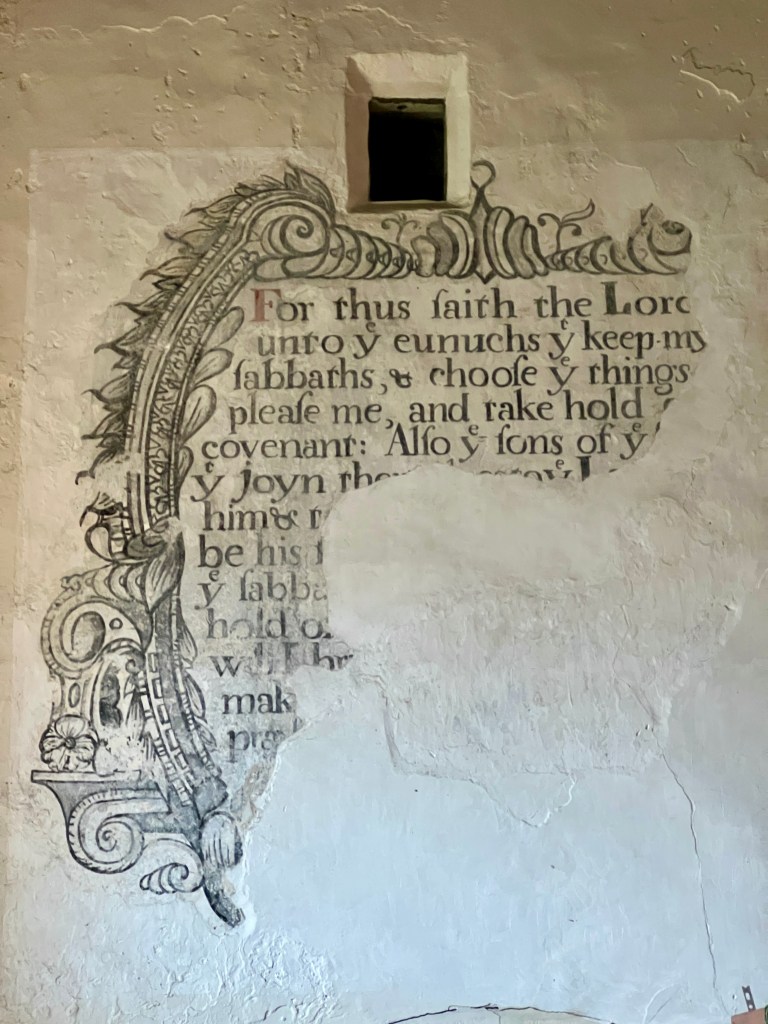 For thus ſaith the Lord
unto yͤ eunuchs yͤ keep my
ſabbaths, & chooſe yͤ things
pleaſe me, and take hold
covenant: Alſo yͤ ſons of yͤ
yͤ joyn
him &
be his
yͤ ſabba
hold of
will I br
mak